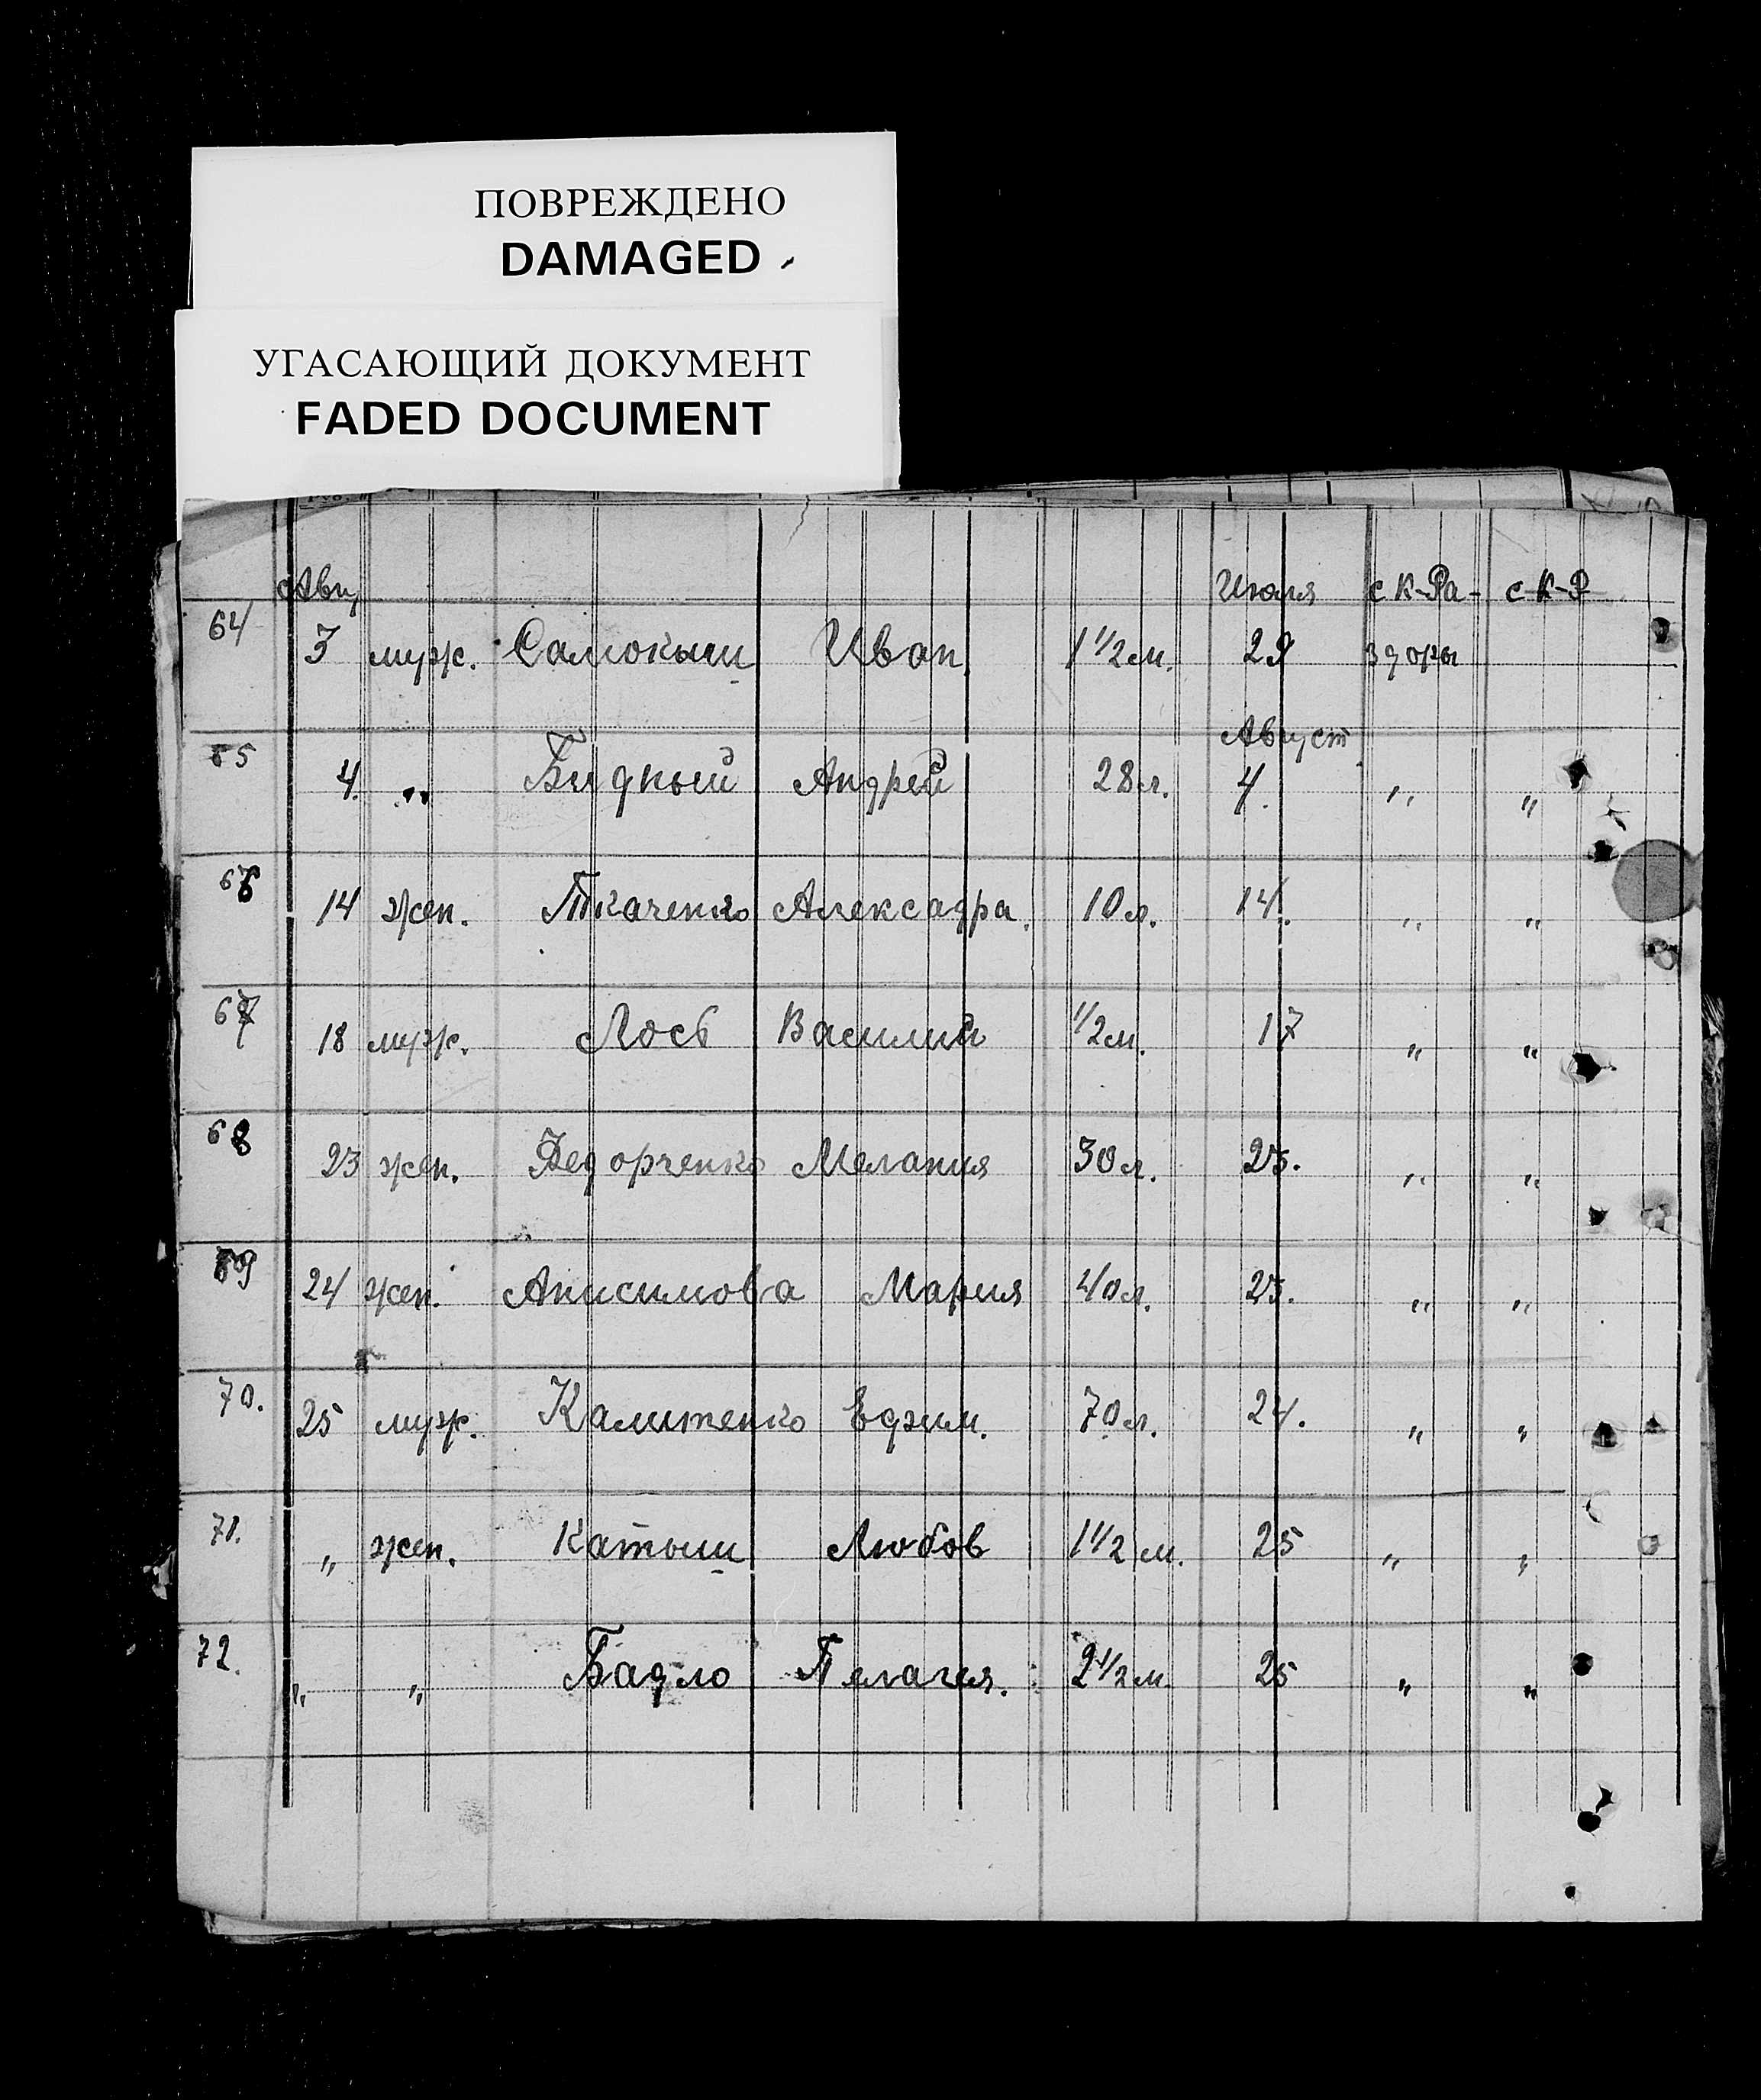 ПОВРЕЖДЕНО
DAMAGED
УГАСАЮЩИЙ ДОКУМЕНТ
FADED DOCUMENT
Авг. Июля с К-Ра- с К-Р
64 3 муж. Самокиш Иван 1 1/2 м. 29 здоры
Август
65 4. " Бидный Андрей 28 л. 4. " "
66 14 жен. Ткаченко Алексадра. 10 л. 14. " "
67 18 муж. Лось Василий 1/2 м. 17 " "
68 23 жен. Федорченко Мелания 30 л. 23. " "
69 24 жен. Анисимова Мария 40 л. 23. " "
70. 25 муж. Калитенко Ефим. 70 л. 24. " "
71. " жен. Катыш Любов 1 1/2 м. 25 " "
72. " " Бадло Пелагея. 2 1/2 м. 25 " "